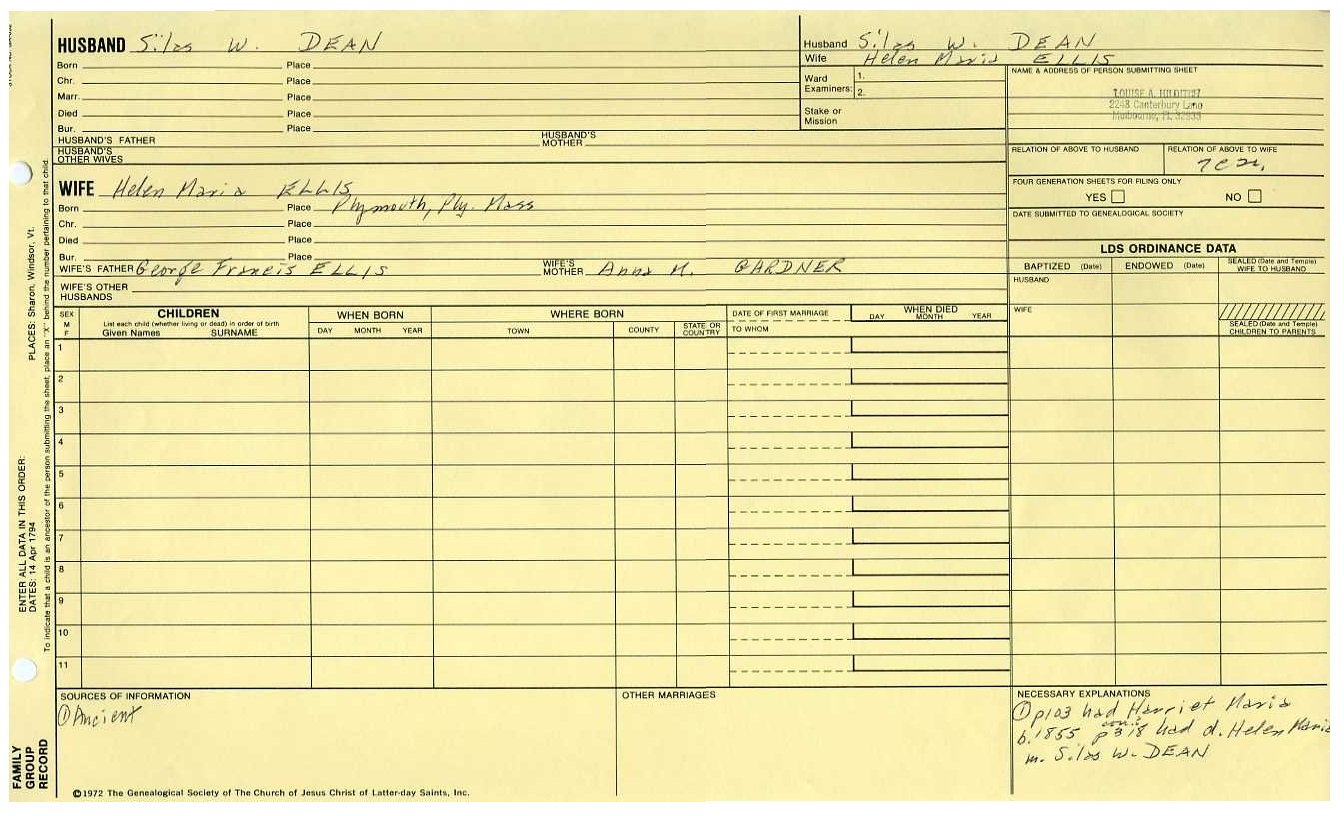 HUSBAND Silas W. DEAN
Born Place
Chr. Place
Marr. Place
Died Place
Bur. Place
HUSBAND'S FATHER HUSBAND'S MOTHER
HUSBAND'S OTHER WIVES
WIFE Helen Maria ELLIS
Born Place Plymouth, Ply. Mass
Chr. Place
Died Place
Bur. Place
WIFE'S FATHER George Francis ELLIS WIFE'S MOTHER Anna M. GARDNER
WIFE'S OTHER HUSBANDS
Husband Silas W. DEAN
Wife Helen Maria ELLIS
Ward Examiners: 1.
2.
Stake or Mission
NAME & ADDRESS OF PERSON SUBMITTING SHEET
LOUISE A.
2248 Canterbury Lane
Melbourne, FL
RELATION OF ABOVE TO HUSBAND RELATION OF ABOVE TO WIFE
FOUR GENERATION SHEETS FOR FILING ONLY
YES NO
DATE SUBMITTED TO GENEALOGICAL SOCIETY
LDS ORDINANCE DATA
BAPTIZED (Date) ENDOWED (Date) SEALED (Date and Temple) WIFE TO HUSBAND
HUSBAND
WIFE
SEALED (Date and Temple) CHILDREN TO PARENTS
SEX M F
CHILDREN
List each child (whether living or dead) in order of birth
Given Names SURNAME
WHEN BORN
DAY MONTH YEAR
WHERE BORN
TOWN COUNTY STATE OR COUNTRY
DATE OF FIRST MARRIAGE
TO WHOM
WHEN DIED
DAY MONTH YEAR
1
2
3
4
5
6
7
8
9
10
11
SOURCES OF INFORMATION
① Ancient
OTHER MARRIAGES
NECESSARY EXPLANATIONS
① p103 had Harriet Maria
b. 1855 p318 had d. Helen Maria
m. Silas W. DEAN
©1972 The Genealogical Society of The Church of Jesus Christ of Latter-day Saints, Inc.
FAMILY GROUP RECORD
ENTER ALL DATA IN THIS ORDER:
DATES: 14 Apr 1794
PLACES: Sharon, Windsor, Vt.
To indicate that a child is an ancestor of the person submitting the sheet, place an "X" behind the number pertaining to that child.